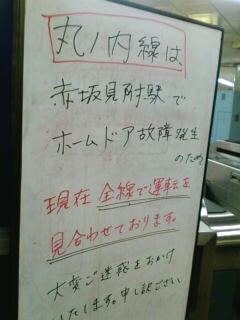 丸ノ内線は、
赤坂見附駅で
ホームドア故障発生
のため
現在 全線で運転を
見合わせております。
大変ご迷惑をおかけ
いたします。申し訳ござい